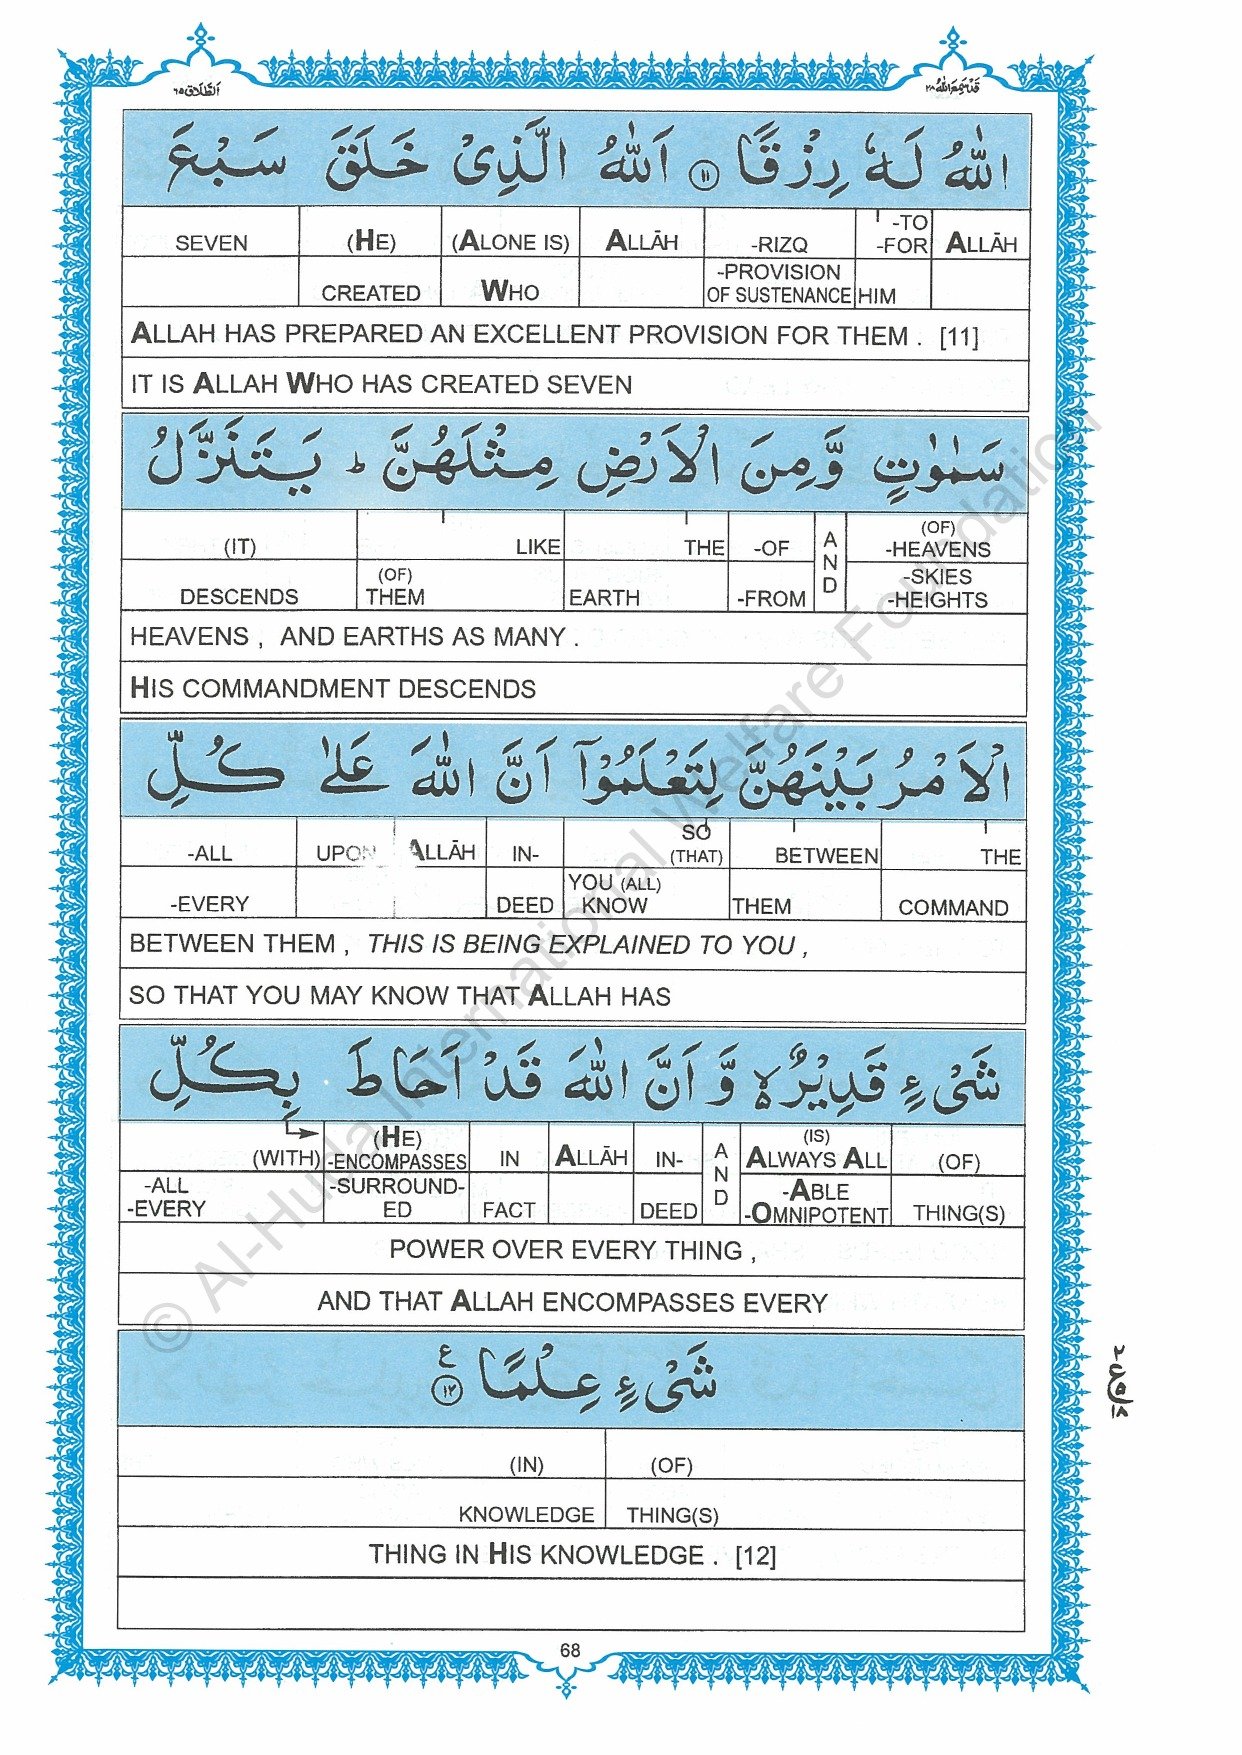 اَلطَّلَاق ٦٥
قَدْ سَمِعَ اللّٰهُ ٢٨
اللّٰهُ لَهٗ رِزْقًا ۝١١ اَللّٰهُ الَّذِیْ خَلَقَ سَبْعَ
SEVEN (HE) (ALONE IS) ALLĀH -RIZQ -TO -FOR ALLĀH
CREATED WHO -PROVISION OF SUSTENANCE HIM
ALLAH HAS PREPARED AN EXCELLENT PROVISION FOR THEM . [11]
IT IS ALLAH WHO HAS CREATED SEVEN
سَمٰوٰتٍ وَّمِنَ الْاَرْضِ مِثْلَهُنَّ ؕ یَتَنَزَّلُ
(IT) LIKE THE -OF AND (OF) -HEAVENS
DESCENDS (OF) THEM EARTH -FROM -SKIES -HEIGHTS
HEAVENS , AND EARTHS AS MANY .
HIS COMMANDMENT DESCENDS
الْاَمْرُ بَیْنَهُنَّ لِتَعْلَمُوْۤا اَنَّ اللّٰهَ عَلٰی كُلِّ
-ALL UPON ALLĀH IN- SO (THAT) BETWEEN THE
-EVERY DEED YOU (ALL) KNOW THEM COMMAND
BETWEEN THEM , THIS IS BEING EXPLAINED TO YOU ,
SO THAT YOU MAY KNOW THAT ALLAH HAS
شَیْءٍ قَدِیْرٌ ۙ۬ وَّاَنَّ اللّٰهَ قَدْ اَحَاطَ بِكُلِّ
(WITH) (HE) -ENCOMPASSES IN ALLĀH IN- AND (IS) ALWAYS ALL (OF)
-ALL -EVERY -SURROUND-ED FACT DEED -ABLE -OMNIPOTENT THING(S)
POWER OVER EVERY THING ,
AND THAT ALLAH ENCOMPASSES EVERY
شَیْءٍ عِلْمًا ۝١٢ ع
(IN) (OF)
KNOWLEDGE THING(S)
THING IN HIS KNOWLEDGE . [12]
68
© Al-Huda International Welfare Foundation